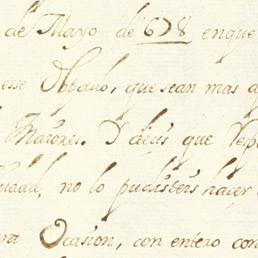 de Mayo de 678 enque
esse Obpado, que sean mas d
Maiores. I decis que
no lo pudisteis hacer
ra Ocasion, con entero con